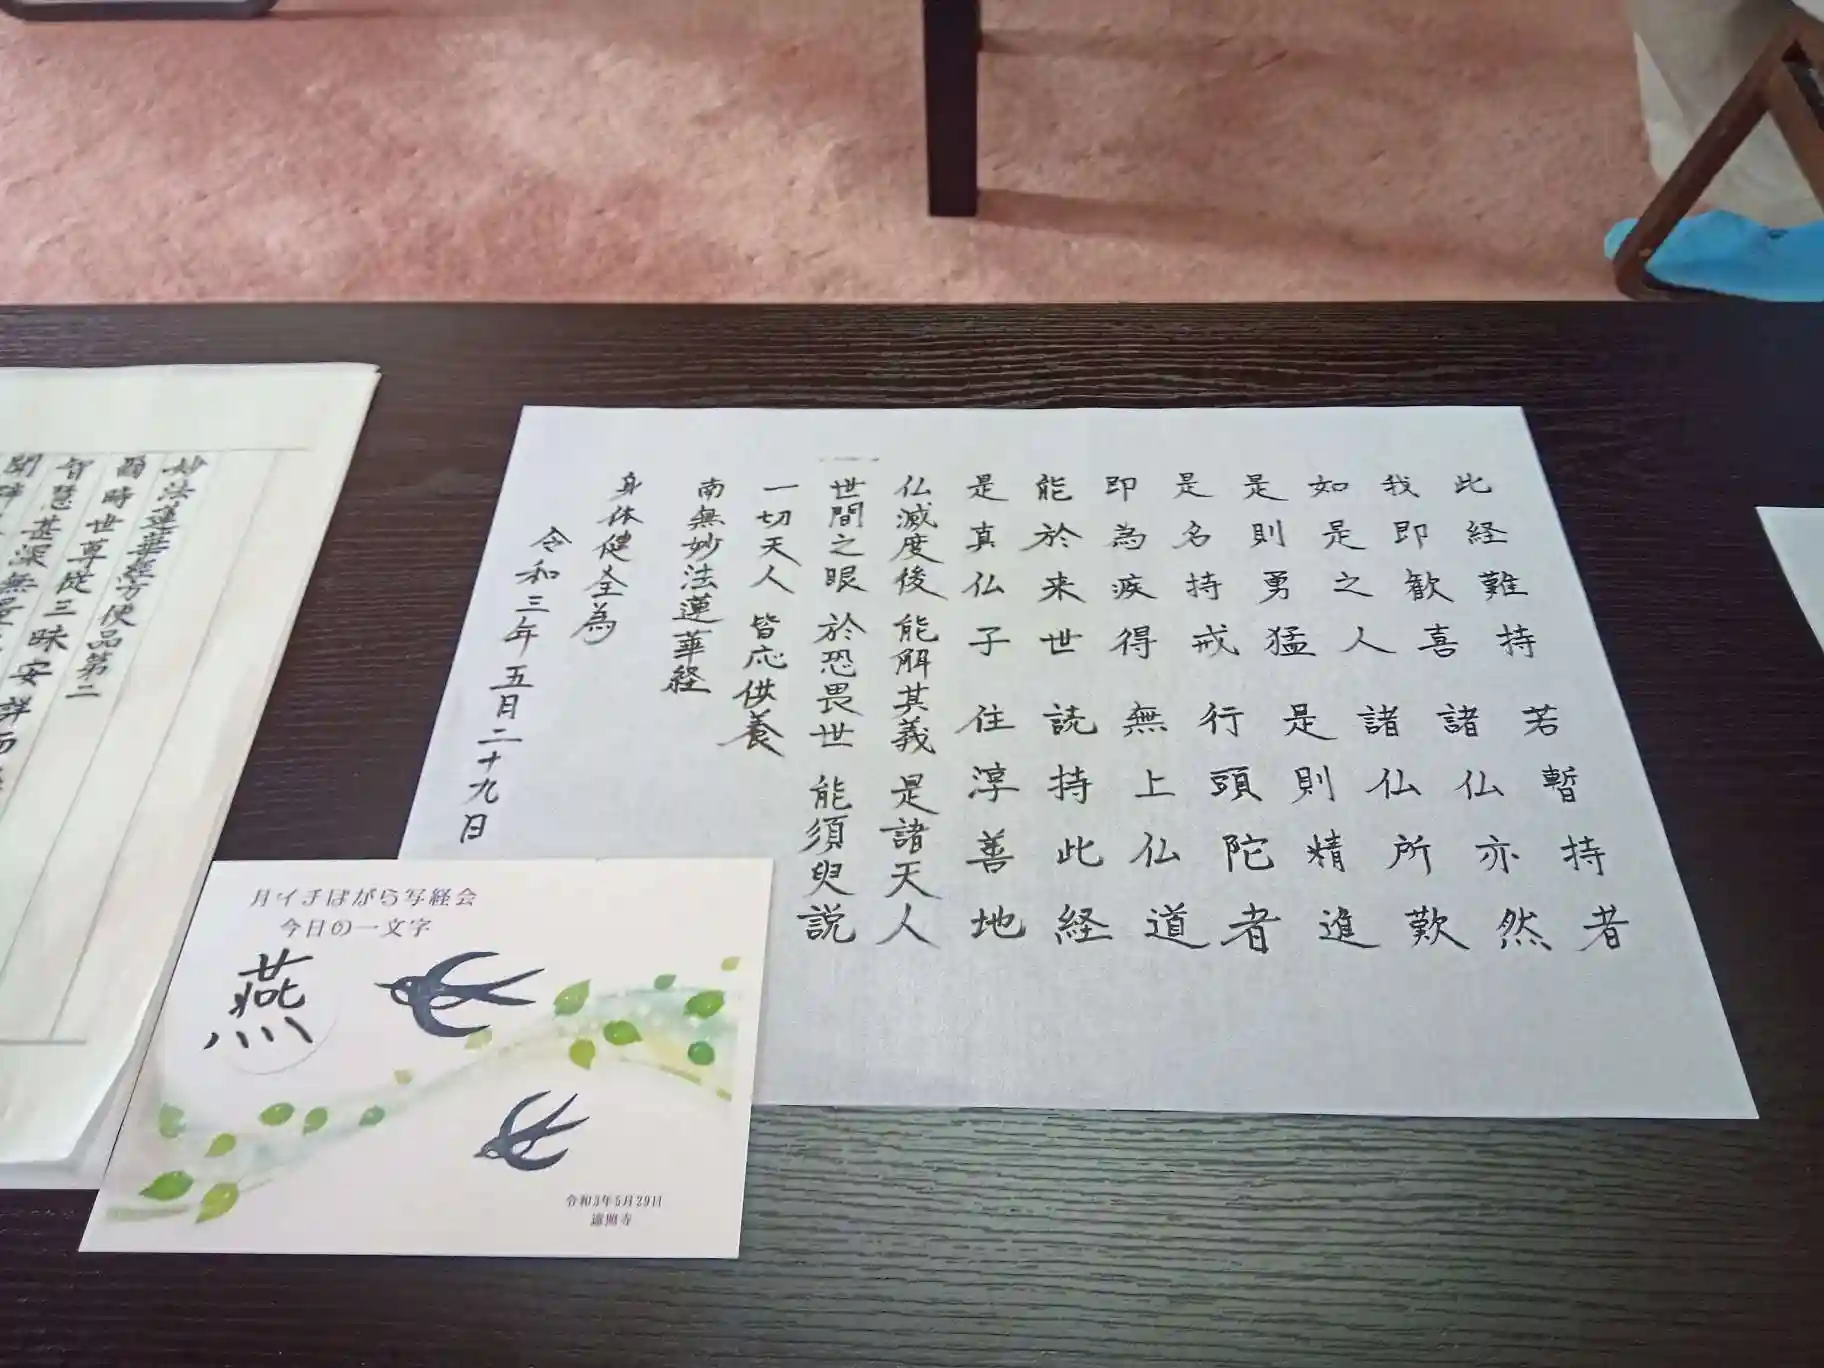 此経難持 若暫持者
我即歓喜 諸仏亦然
如是之人 諸仏所歎
是則勇猛 是則精進
是名持戒 行頭陀者
即為疾得 無上仏道
能於来世 読持此経
是真仏子 住淳善地
仏滅度後 能解其義 是諸天人
世間之眼 於恐畏世 能須臾説
一切天人 皆応供養
南無妙法蓮華経
身体健全為
令和三年 五月二十九日
妙法蓮華経方便品第二
爾時世尊従三昧安詳而
智慧甚深無量
月イチはがら写経会
今日の一文字
燕
令和3年5月29日